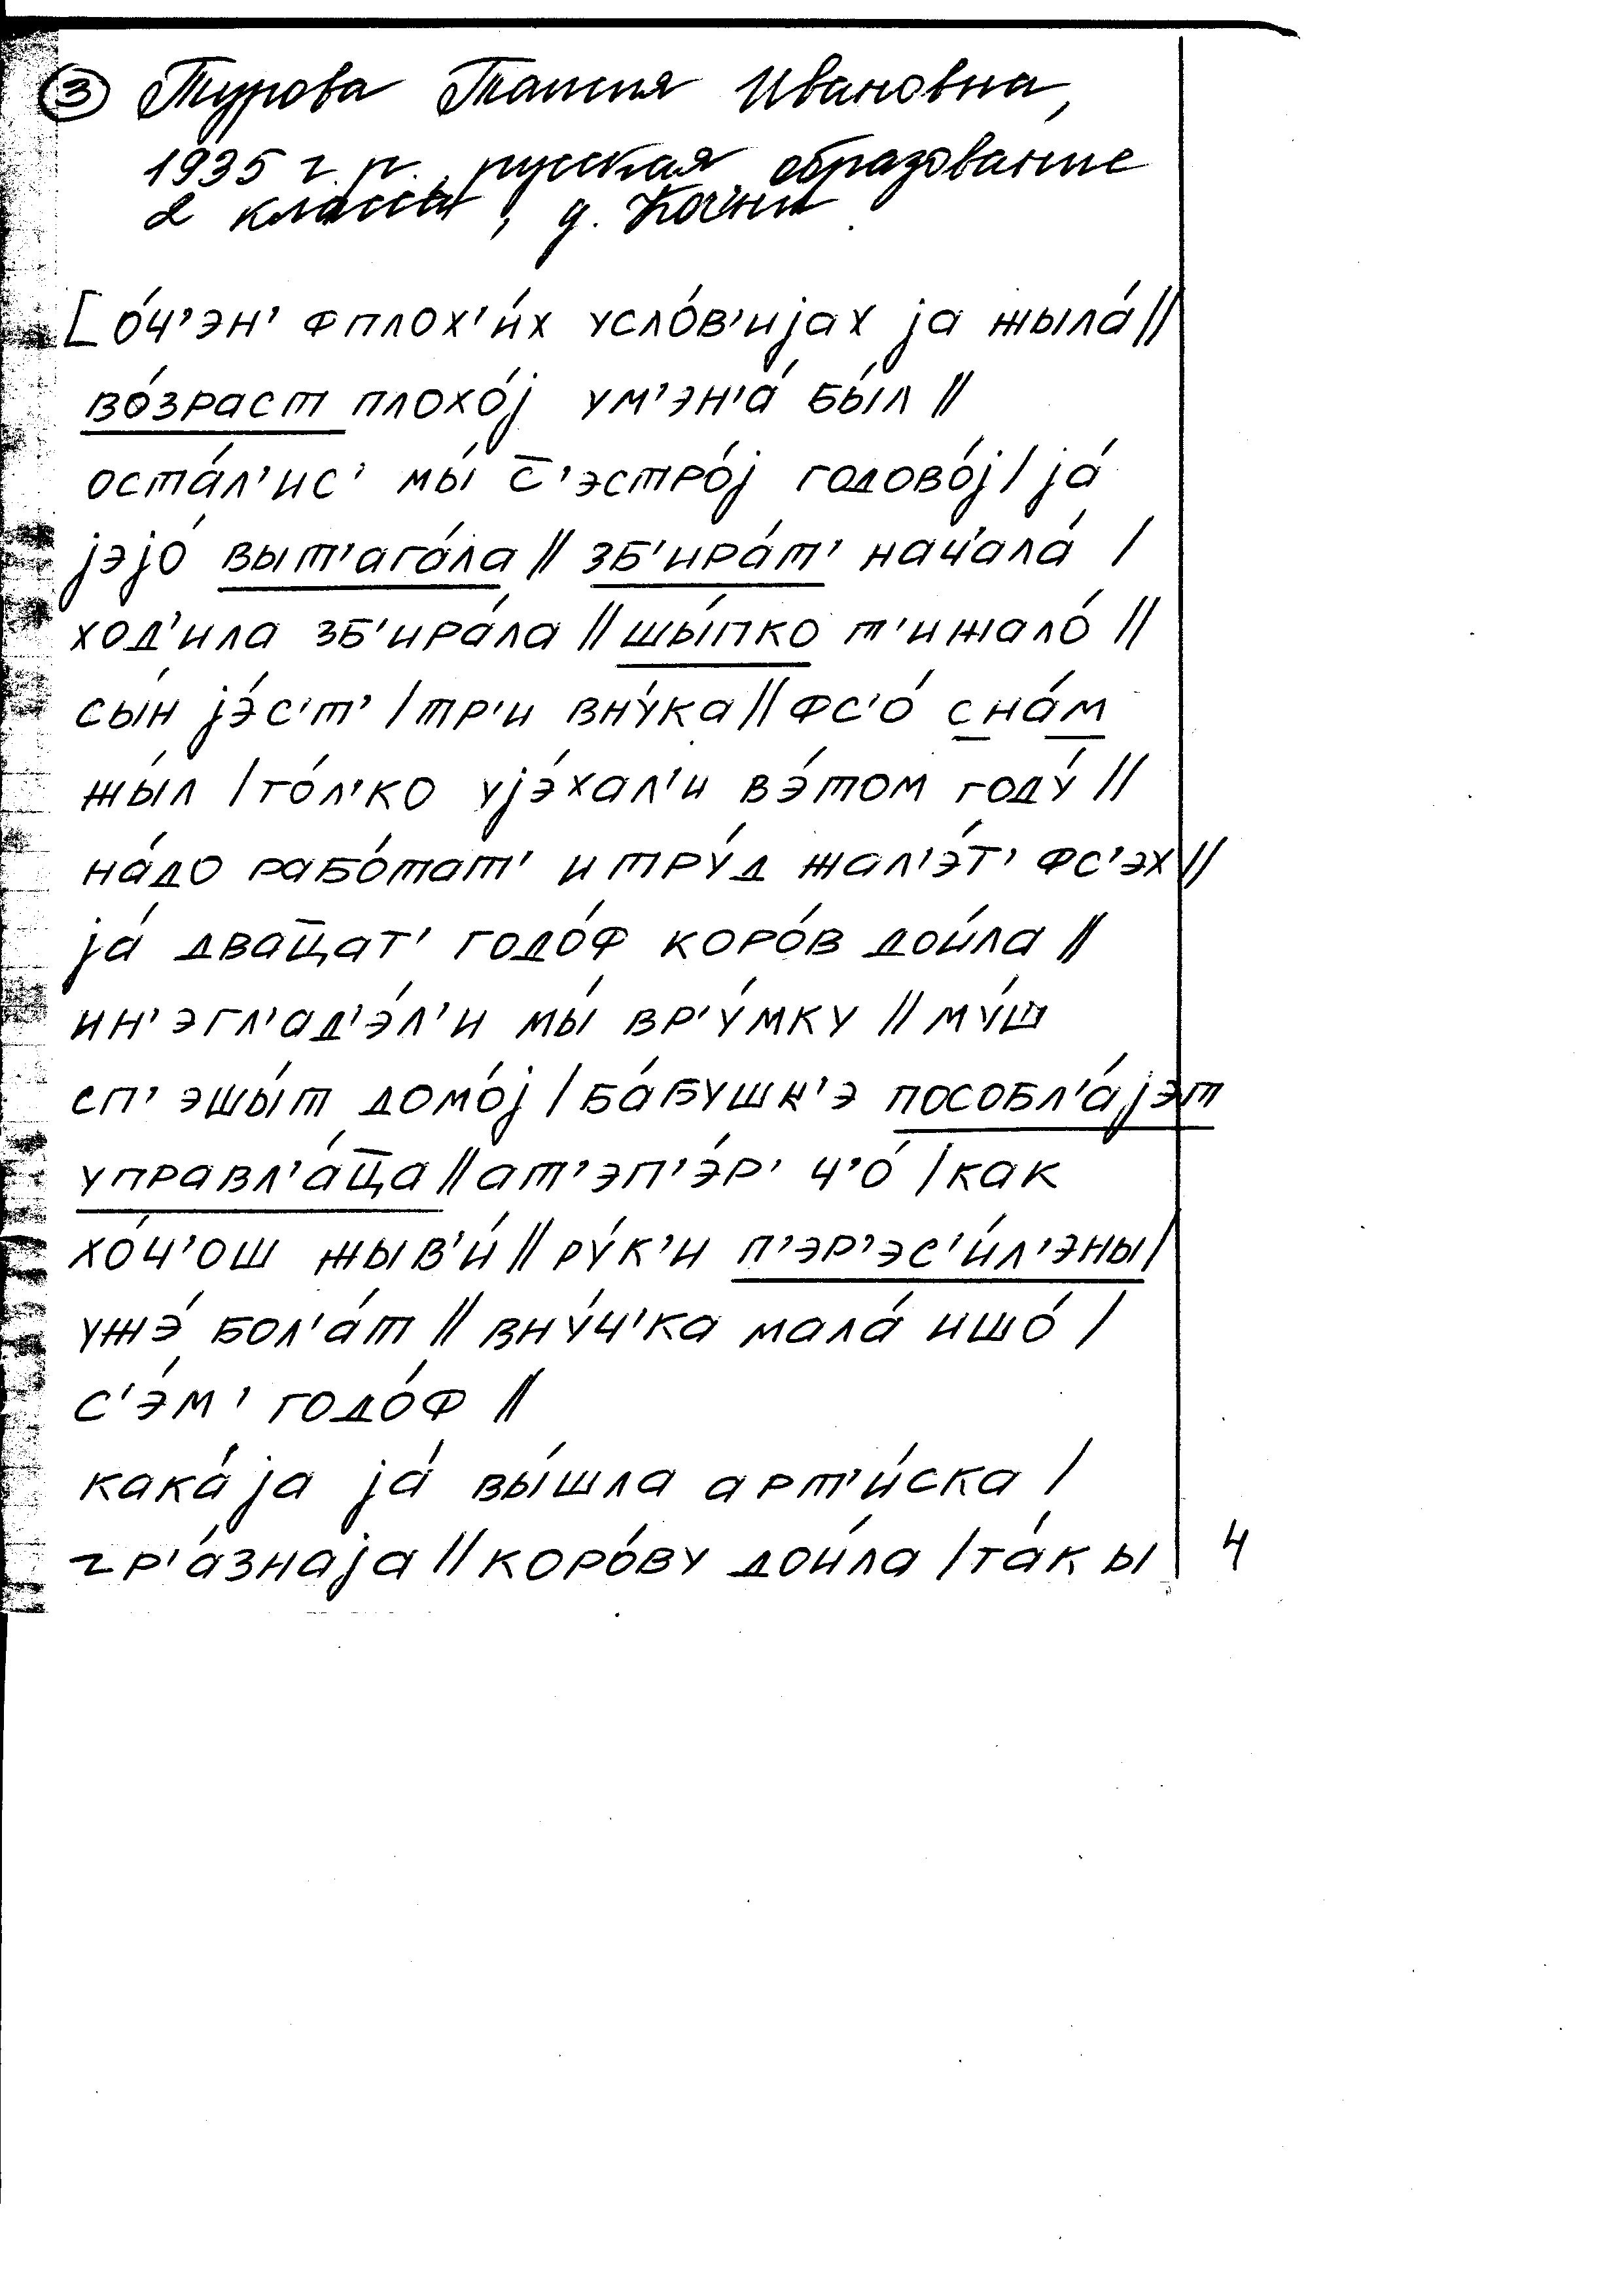 ③ Турова Таисия Ивановна,
1935 г.р., русская образование
2 классы, д. Кочни.
[о́ч'эн' фплох'и́х усло́в'ијах ја жыла́//
во́зраст плохо́ј ум'эн'а́ бы́л //
оста́л'ис' мы́ с̄'эстро́ј годово́ј/ја́
јэјо́ выт'ага́ла // зб'ира́т' нач'ала́ /
ход'ила зб'ира́ла // шы́пко т'ижало́ //
сы́н јэ́с'т' / тр'и вну́ка // фс'о́ сна́м
жы́л / то́л'ко ујэ́хал'и вэ́том году́ //
на́до рабо́тат' и тру́д жал'э́т' фс'эх //
ја́ двац̄ат' годо́ф коро́в дои́ла //
ин'эгл'ад'э́л'и мы́ вр'у́мку // му́ш
сп'эшы́т домо́ј / ба́бушк'э пособл'а́јэт
управл'а́ц̄а // ат'эп'э́р' ч'о́ / как
хо́ч'ош жыв'и́ // ру́к'и п'эр'эс'и́л'эны/
ужэ́ бол'а́т // вну́ч'ка мала́ ишо́ /
с'э́м' годо́ф //
кака́ја ја́ вы́шла арт'и́ска /
гр'а́знаја // коро́ву дои́ла / та́к ы
4